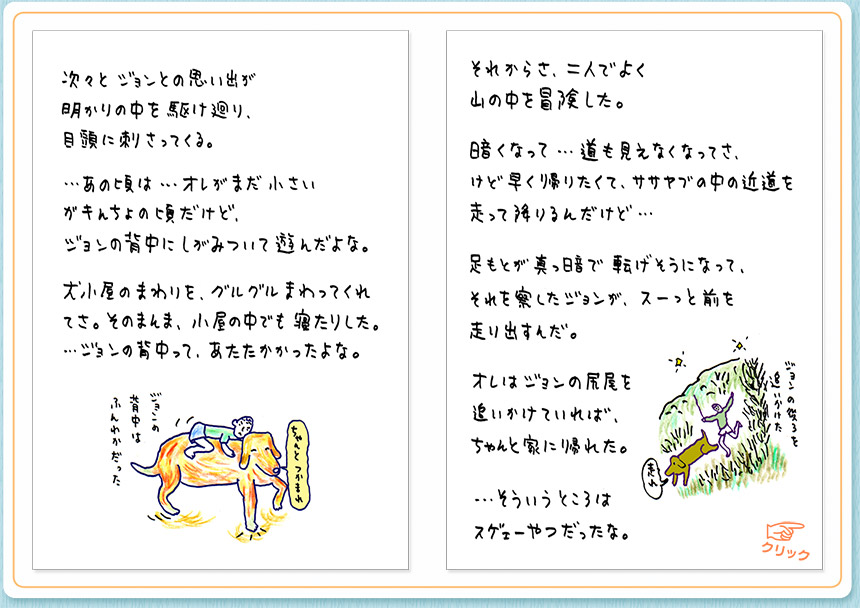 次々と ジョンとの思い出が
明かりの中を駆け廻り、
目頭に刺さってくる。
…あの頃は …オレがまだ小さい
ガキんちょの頃だけど、
ジョンの背中にしがみついて遊んだよな。
犬小屋のまわりを、グルグルまわってくれ
てさ。そのまんま、小屋の中でも寝たりした。
…ジョンの背中って、あたたかかったよな。
ジョンの
背中は
ふんわかだった
ちゃんとつかまれ
それからさ、二人でよく
山の中を冒険した。
暗くなって …道も見えなくなってさ、
けど早く帰りたくて、ササヤブの中の近道を
走って降りるんだけど…
足もとが真っ暗で転げそうになって、
それを察したジョンが、スーっと前を
走り出すんだ。
オレはジョンの尻尾を
追いかけていれば、
ちゃんと家に帰れた。
…そういうところは
スゲェーやつだったな。
ジョンの後ろを
追いかけた
走れ
クリック